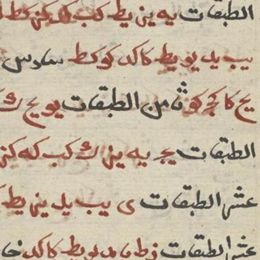 الطبقات يه يز يط كب كد كز كط
يب يد يو يط كا كد كو كط سادس
يح كا كج كو ثامن الطبقات يو يح ك
الطبقات يج يه يز ك كب كه كز
عشر الطبقات ى يب يد يز يط
عشر الطبقات ز ط يا يد يو يط كا كد